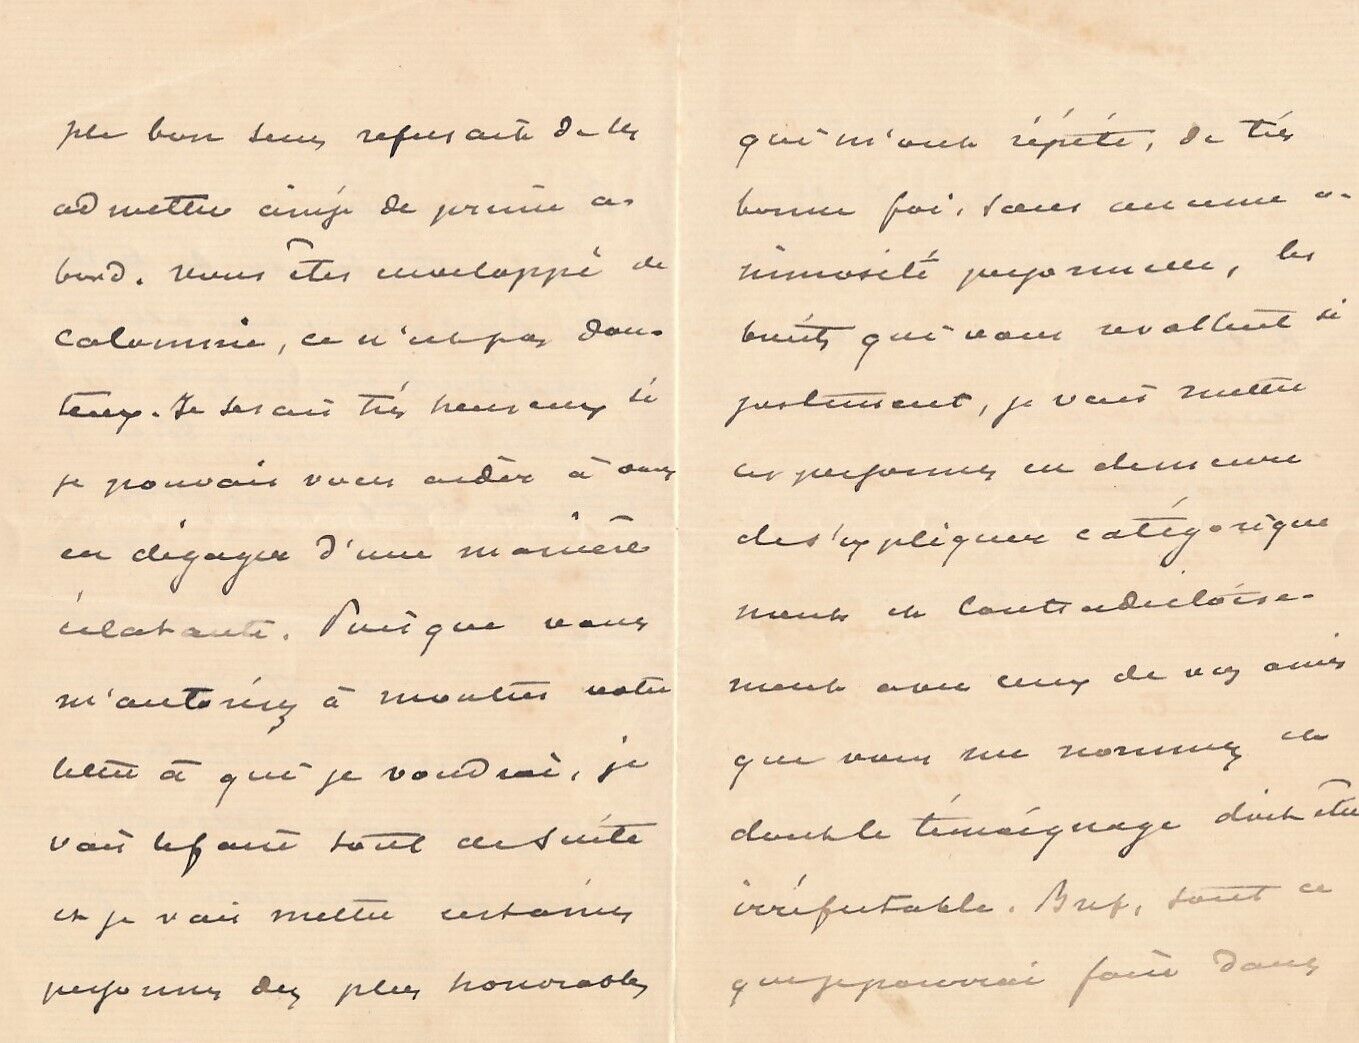 ple bon sens refusait de les
admettre ainsi de prime a-
bord. Vous êtes enveloppé de
calomnie, ce n'est pas dou-
teux. Je serais très heureux si
je pouvais vous aider à vous
en dégager d'une manière
éclatante. Puisque vous
m'autorisez à montrer votre
lettre à qui je voudrai, je
vais le faire tout de suite
et je vais mettre certaines
personnes des plus honorables
qui m'ont répété, de très
bonne foi, sans aucune a-
nimosité personnelle, les
bruits qui vous révoltent si
justement, je vais mettre
ces personnes en demeure
de s'expliquer catégorique
ment et contradictoire-
ment avec ceux de vos amis
que vous me nommez et
double témoignage doit être
irréfutable. Bref, tout ce
que je pourrai faire dans